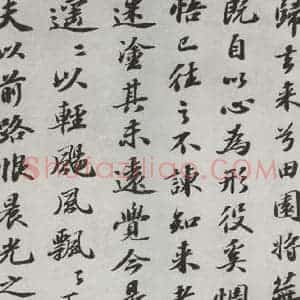 歸去来兮田園將蕪
既自以心為形役奚惆
悟已往之不諫知来者
迷塗其未遠覺今是
遥〻以輕颺風飄〻
夫以前路恨晨光之
Shufaziliao.com